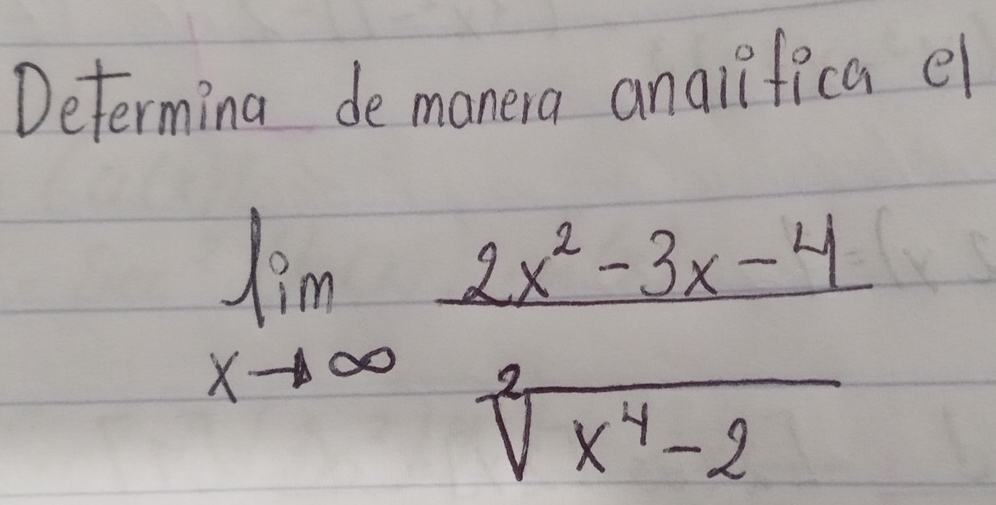 Determina de manera analitica el
lim 2x² - 3x - 4
x → ∞ ²√x⁴ - 2